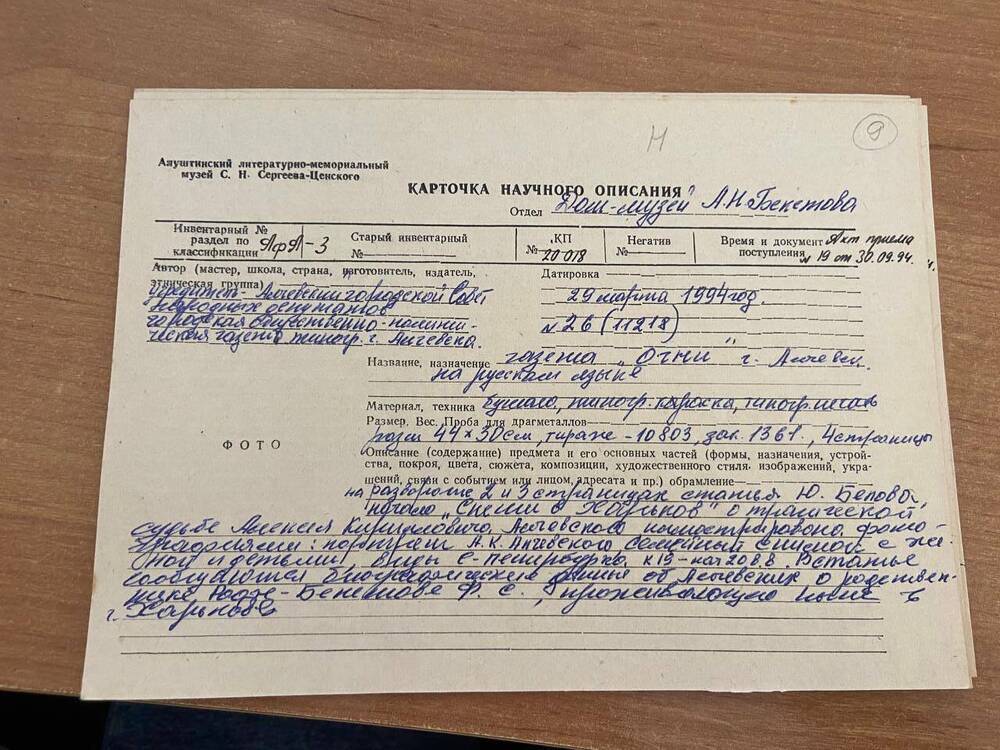 Н
9
Алуштинский литературно-мемориальный
музей С. Н. Сергеева-Ценского
КАРТОЧКА НАУЧНОГО ОПИСАНИЯ
Отдел Дом-музей А.Н.Бекетова
Инвентарный №
раздел по
классификации АфА-3
Старый инвентарный
№
КП
№ 20 018
Негатив
№
Время и документ Акт приема
поступления № 19 от 30.09.94 г.
Автор (мастер, школа, страна, изготовитель, издатель,
этническая группа)
учредитель - Алчевский городской Совет
народных депутатов
городская общественно-полити-
ческая газета типогр. г. Алчевска.
Датировка
29 марта 1994 год.
№ 26 (11218)
Название, назначение газета "Огни" г. Алчевск.
на русском языке
Материал, техника Бумага, типогр. краска, типогр. печать
Размер, Вес. Проба для драгметаллов
разм 44 х 30 см, тираж - 10803, зак. 1361, 4 страницы
ФОТО
Описание (содержание) предмета и его основных частей (формы, назначения, устрой-
ства, покроя, цвета, сюжета, композиции, художественного стиля изображений, укра-
шений, связи с событием или лицом, адресата и пр.) обрамление
на развороте 2 и 3 страницах статья Ю. Белова,
начало "Снети с Харьков" о трагической
судьбе Алексея Кирилловича Алчевского иллюстрирована фото-
графиями: портрет А.К. Алчевского семейный с же
ной и детьми, виды С-Петербурга к 19-нач 20 в.в. В статье
сообщаются биографические данные об Алчевских о родствен-
нике Ф. С., проживающего ныне в
г. Харькове